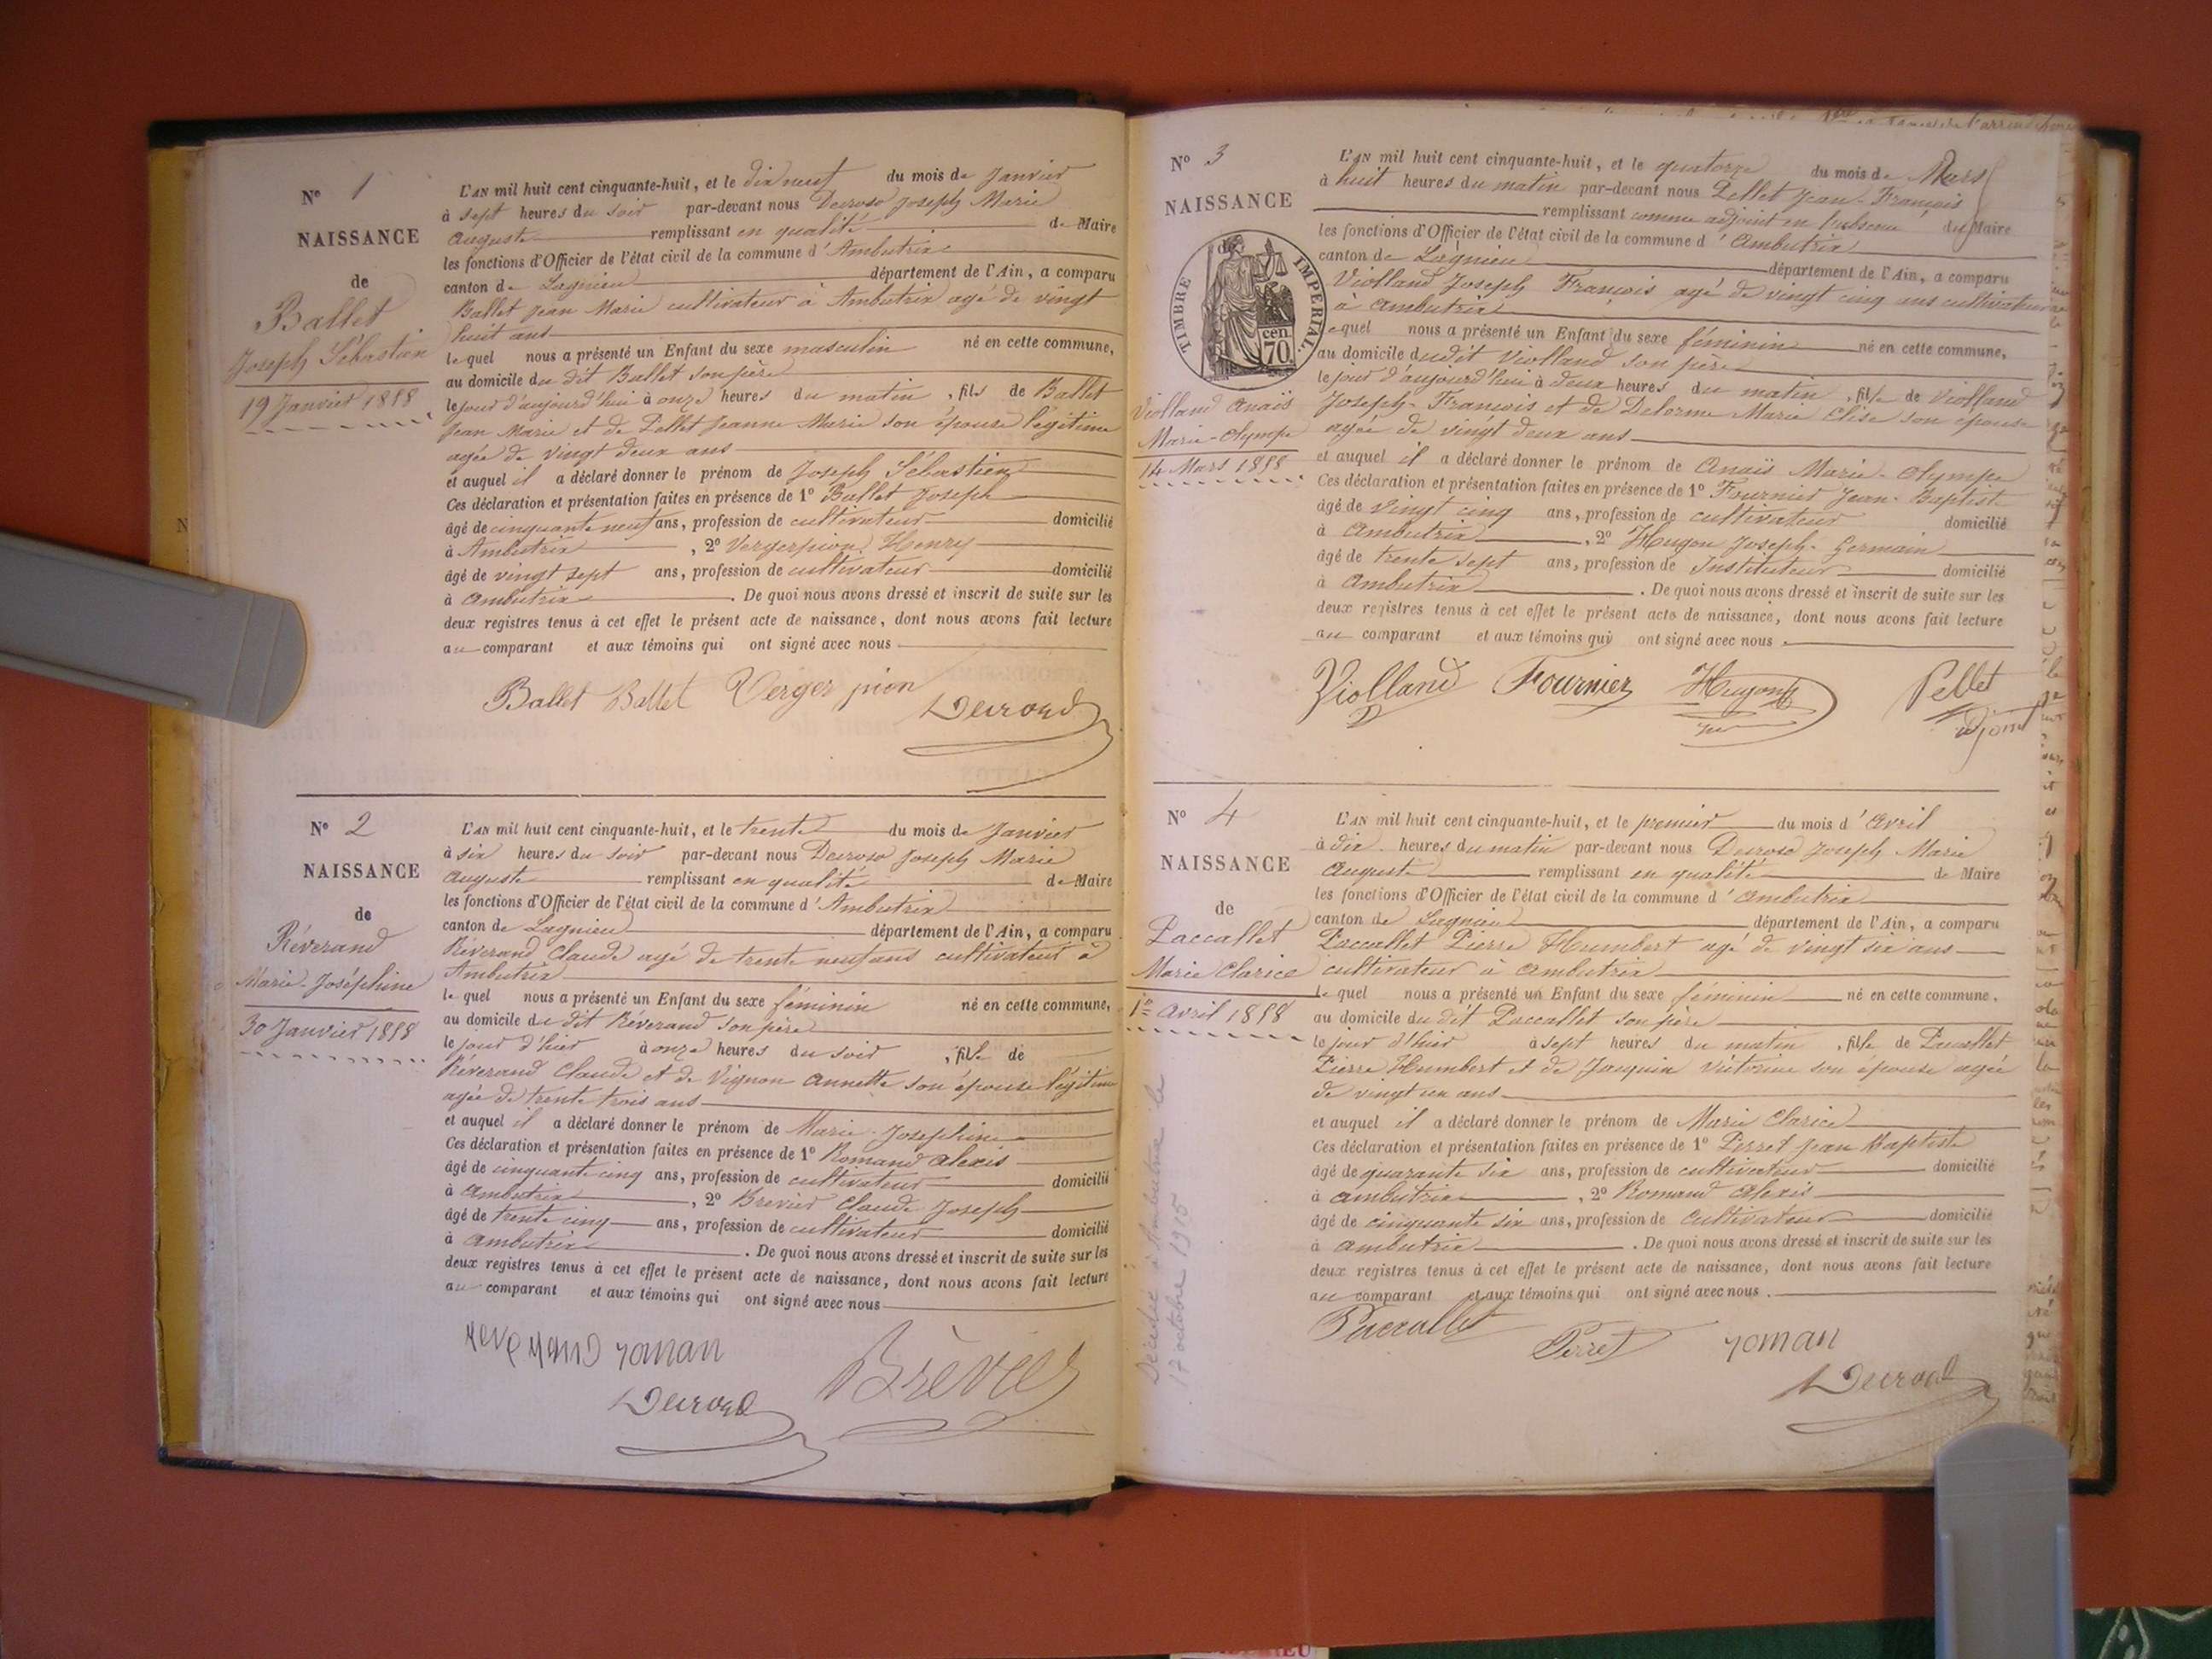 N° 1
NAISSANCE
de
Ballet
Joseph Sébastien
19 Janvier 1858
L'AN mil huit cent cinquante-huit, et le dix neuf du mois de Janvier
à sept heures du soir par-devant nous Decroso Joseph Marie
Auguste remplissant en qualité de Maire
les fonctions d'Officier de l'état civil de la commune d'Ambutrix
canton de Lagnieu département de l'Ain, a comparu
Ballet Jean Marie cultivateur à Ambutrix agé de vingt
huit ans
lequel nous a présenté un Enfant du sexe masculin né en cette commune,
au domicile du dit Ballet son père
le jour d'aujourd'hui à onze heures du matin, fils de Ballet
Jean Marie et de Pellet Jeanne Marie son épouse légitime
agée de vingt deux ans
et auquel il a déclaré donner le prénom de Joseph Sébastien
Ces déclaration et présentation faites en présence de 1° Ballet Joseph
âgé de cinquante neuf ans, profession de cultivateur domicilié
à Ambutrix, 2° Vergerpion Henry
âgé de vingt sept ans, profession de cultivateur domicilié
à Ambutrix. De quoi nous avons dressé et inscrit de suite sur les
deux registres tenus à cet effet le présent acte de naissance, dont nous avons fait lecture
au comparant et aux témoins qui ont signé avec nous
Ballet Ballet Verger pion
N° 2
NAISSANCE
de
Réverand
Marie-Joséphine
30 Janvier 1858
L'AN mil huit cent cinquante-huit, et le trente du mois de Janvier
à six heures du soir par-devant nous Decroso Joseph Marie
Auguste remplissant en qualité de Maire
les fonctions d'Officier de l'état civil de la commune d'Ambutrix
canton de Lagnieu département de l'Ain, a comparu
Réverand Claude agé de trente neuf ans cultivateur à
Ambutrix
le quel nous a présenté un Enfant du sexe féminin né en cette commune,
au domicile du dit Réverand son père
le jour d'hier à onze heures du soir, fille de
Réverand Claude et de Vignon Annette son épouse légitime
agée de trente trois ans
et auquel il a déclaré donner le prénom de Marie-Josephine
Ces déclaration et présentation faites en présence de 1° Romand Alexis
âgé de cinquante cinq ans, profession de cultivateur domicilié
à Ambutrix, 2° Brevier Claude Joseph
âgé de trente cinq ans, profession de cultivateur domicilié
à Ambutrix. De quoi nous avons dressé et inscrit de suite sur les
deux registres tenus à cet effet le présent acte de naissance, dont nous avons fait lecture
au comparant et aux témoins qui ont signé avec nous
reverand roman
N° 3
NAISSANCE
TIMBRE IMPERIAL
70 cen.
Violland Anaïs
Marie-Olympe
14 Mars 1858
L'AN mil huit cent cinquante-huit, et le quatorze du mois de Mars
à huit heures du matin par-devant nous Pellet Jean-François
remplissant comme adjoint en l'absence du Maire
les fonctions d'Officier de l'état civil de la commune d'Ambutrix
canton de Lagnieu département de l'Ain, a comparu
Violland Joseph François agé de vingt cinq ans cultivateur
à Ambutrix
lequel nous a présenté un Enfant du sexe féminin né en cette commune,
au domicile dudit Violland son père
le jour d'aujourd'hui à deux heures du matin, fille de Violland
Joseph-François et de Delorme Marie Elise son épouse
agée de vingt deux ans
et auquel il a déclaré donner le prénom de Anaïs Marie-Olympe
Ces déclaration et présentation faites en présence de 1° Fournier Jean-Baptiste
âgé de vingt cinq ans, profession de cultivateur domicilié
à Ambutrix, 2° Hugon Joseph-Germain
âgé de trente sept ans, profession de Instituteur domicilié
à Ambutrix. De quoi nous avons dressé et inscrit de suite sur les
deux registres tenus à cet effet le présent acte de naissance, dont nous avons fait lecture
au comparant et aux témoins qui ont signé avec nous.
Violland Fournier Hugon Pellet
adjoint
N° 4
NAISSANCE
de
Paccallet
Marie Clarice
1er avril 1858
Décédée à Ambutrix le
17 octobre 1915
L'AN mil huit cent cinquante-huit, et le premier du mois d'Avril
à dix heures du matin par-devant nous Decroso Joseph Marie
Auguste remplissant en qualité de Maire
les fonctions d'Officier de l'état civil de la commune d'Ambutrix
canton de Lagnieu département de l'Ain, a comparu
Paccallet Pierre Humbert agé de vingt six ans
cultivateur à Ambutrix
le quel nous a présenté un Enfant du sexe féminin né en cette commune,
au domicile du dit Paccallet son père
le jour d'hier à sept heures du matin, fille de Paccallet
Pierre Humbert et de Janquin Victorine son épouse agée
de vingt un ans
et auquel il a déclaré donner le prénom de Marie Clarice
Ces déclaration et présentation faites en présence de 1° Perret Jean Baptiste
âgé de quarante six ans, profession de cultivateur domicilié
à Ambutrix, 2° Romand Alexis
âgé de cinquante six ans, profession de cultivateur domicilié
à Ambutrix. De quoi nous avons dressé et inscrit de suite sur les
deux registres tenus à cet effet le présent acte de naissance, dont nous avons fait lecture
au comparant et aux témoins qui ont signé avec nous.
Paccallet Perret roman